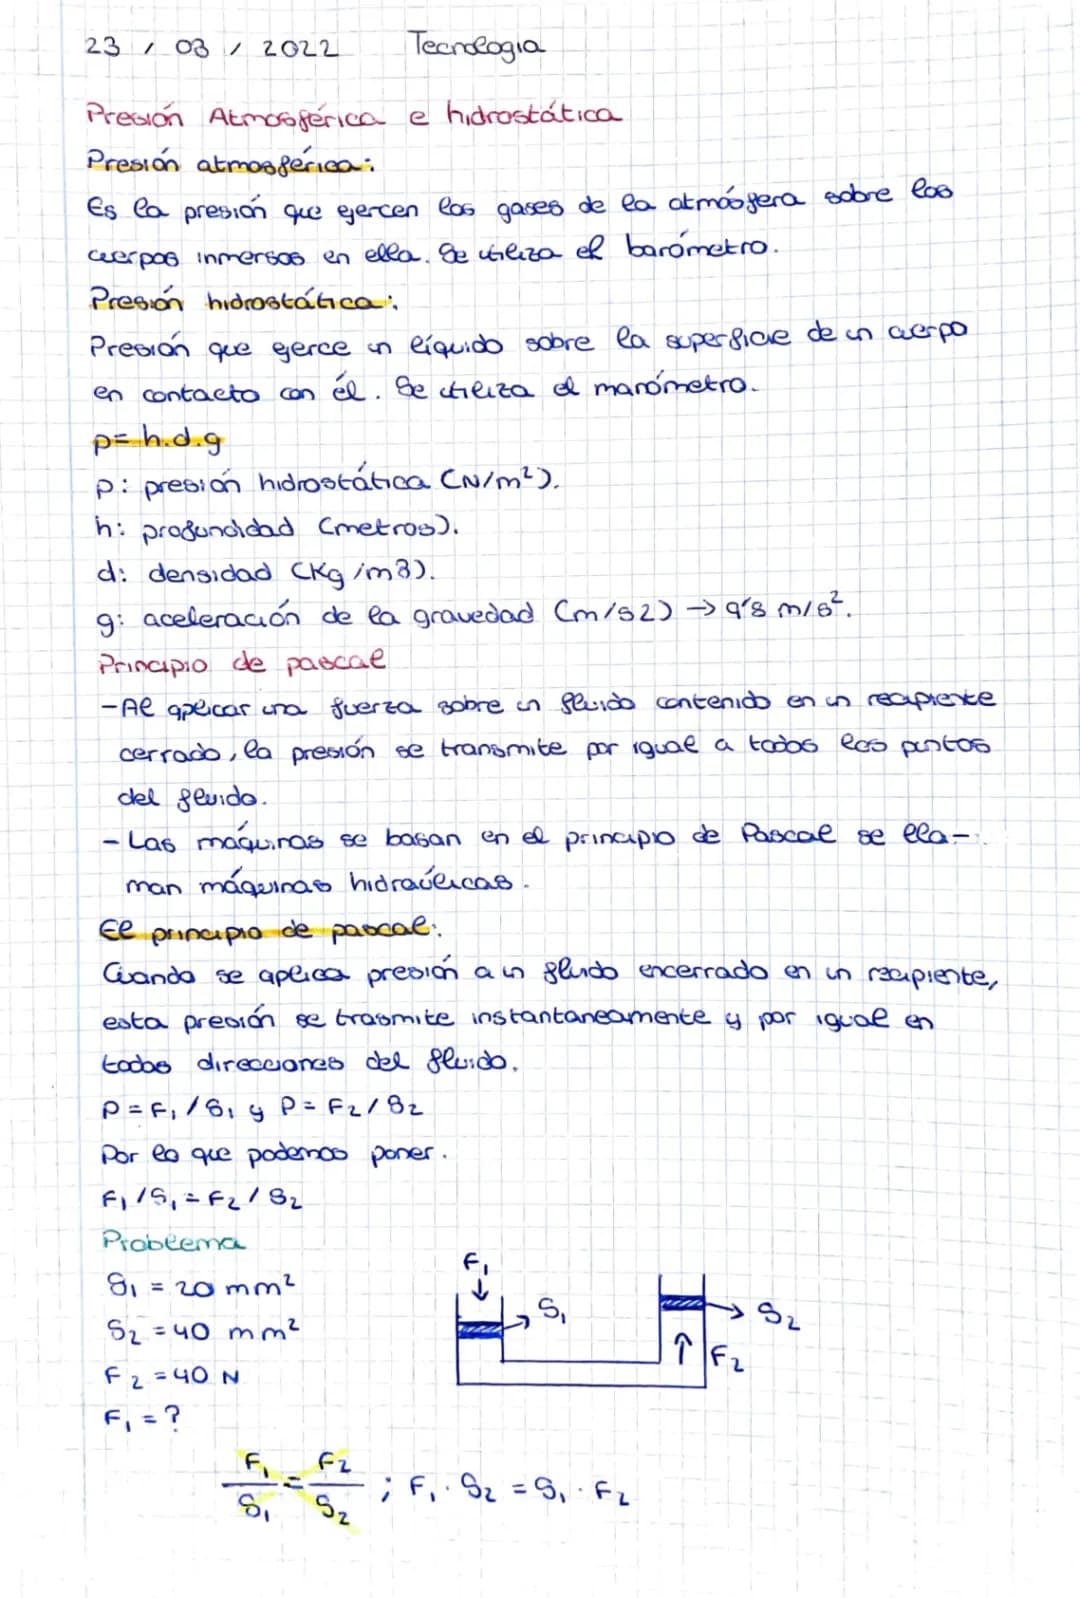 23 / 03 / 2022 Tecnología
Presión Atmosférica e hidrostática
Presión atmosférica:
Es la presión que ejercen los gases de la atmósfera sobre los
cuerpos inmersos en ella. Se utiliza el barómetro.
Presión hidrostática:
Presión que ejerce un líquido sobre la superficie de un cuerpo
en contacto con él. Se utiliza el manómetro.
p= h.d.g
p: presión hidrostática (N/m²).
h: profundidad (metros).
d: densidad (Kg/m3).
g: aceleración de la gravedad (m/s2) → 9'8 m/s².
Principio de pascal
-Al aplicar una fuerza sobre un fluido contenido en un recipiente
cerrado, la presión se transmite por igual a todos los puntos
del fluido.
- Las máquinas se basan en el principio de Pascal se lla-
man máquinas hidraúlicas.
El principio de pascal:
Cuando se aplica presión a un fluido encerrado en un recipiente,
esta presión se trasmite instantaneamente y por igual en
todas direcciones del fluido.
P = F₁ / S₁ y P = F₂ / S₂
Por lo que podemos poner.
F₁ / S₁ = F₂ / S₂
Problema
S₁ = 20 mm²
S₂ = 40 mm²
F₂ = 40 N
F₁ = ?
F₁
S₁
S₂
F₂
F₁/S₁ = F₂/S₂ ; F₁ · S₂ = S₁ · F₂